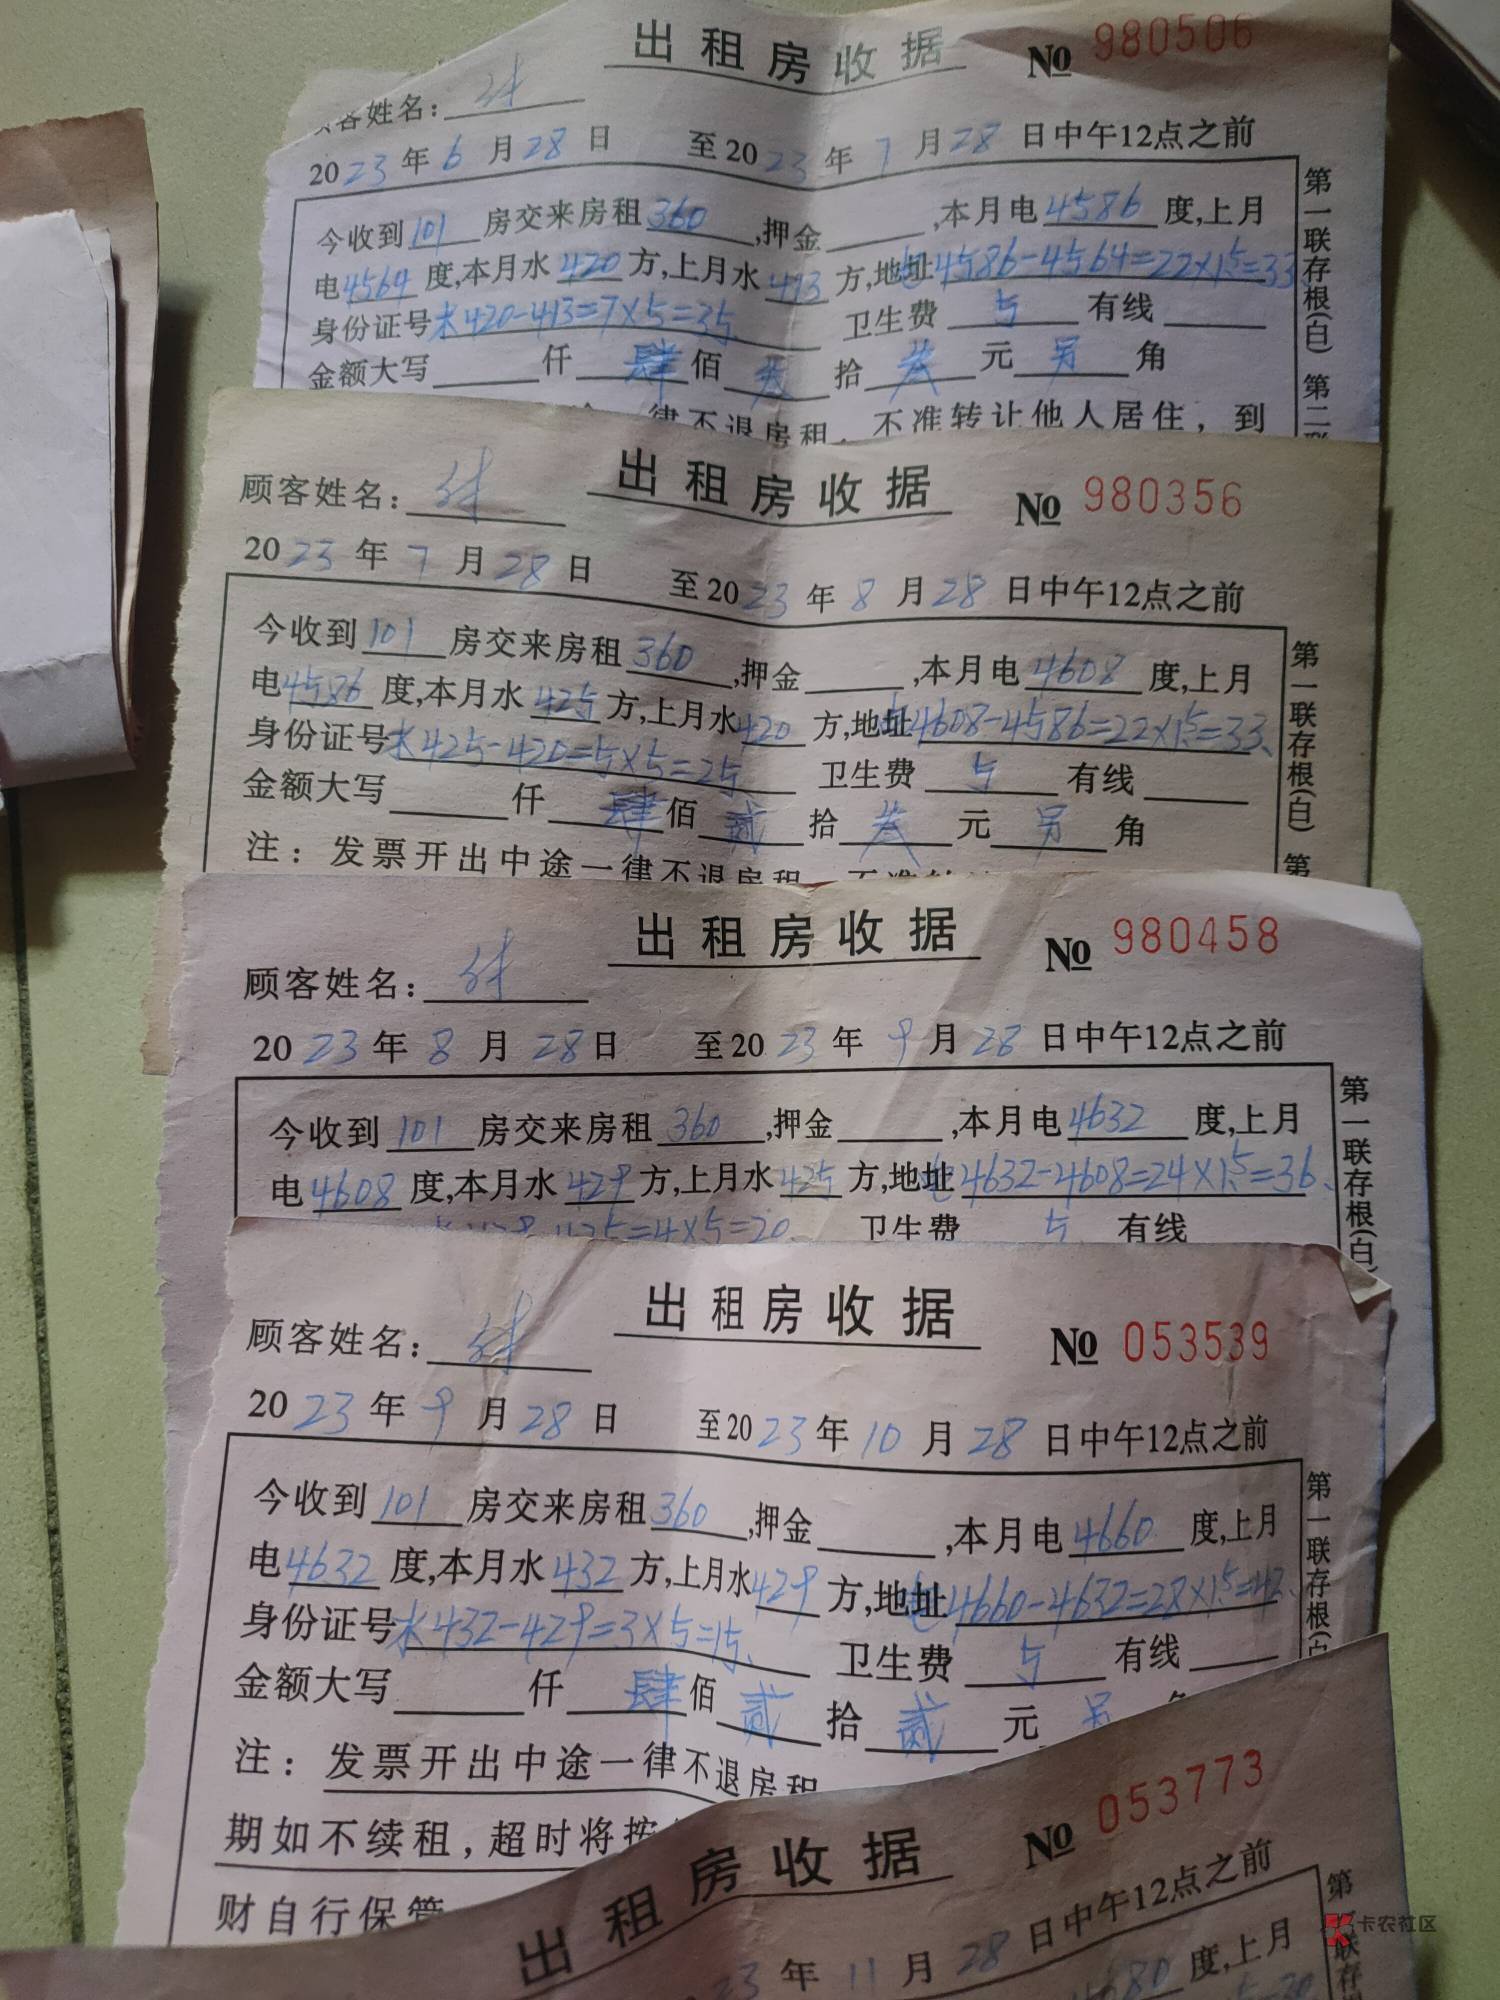 出租房收据 № 980506
客姓名：
2023年6月28日 至2023年7月28日中午12点之前
今收到101房交来房租360,押金 ,本月电4586度,上月
电4564度,本月水420方,上月水413方,地址电4586-4564=22×1.5=33
身份证号水420-413=7×5=35 卫生费5 有线
金额大写 仟肆佰叁拾叁元另角
一律不退房租，不准转让他人居住，到
第一联存根(白) 第二联
出租房收据 № 980356
顾客姓名：
2023年7月28日 至2023年8月28日中午12点之前
今收到101房交来房租360,押金 ,本月电4608度,上月
电4586度,本月水425方,上月水420方,地址电4608-4586=22×1.5=33、
身份证号水425-420=5×5=25 卫生费5 有线
金额大写 仟肆佰贰拾叁元另角
注：发票开出中途一律不退房租
第一联存根(白) 第
出租房收据 № 980458
顾客姓名：
2023年8月28日 至2023年9月28日中午12点之前
今收到101房交来房租360,押金 ,本月电4632度,上月
电4608度,本月水429方,上月水425方,地址电4632-4608=24×1.5=36、
水429-425=4×5=20、 卫生费5 有线
第一联存根(白)
出租房收据 № 053539
顾客姓名：
2023年9月28日 至2023年10月28日中午12点之前
今收到101房交来房租360,押金 ,本月电4660度,上月
电4632度,本月水432方,上月水429方,地址电4660-4632=28×1.5=42、
身份证号水432-429=3×5=15、 卫生费5 有线
金额大写 仟肆佰贰拾贰元另角
注：发票开出中途一律不退房租
期如不续租，超时将按
财自行保管
第一联存根(白
出租房收据 № 053773
23年11月28日中午12点之前
4680度,上月
5=30
第一联存
卡农社区